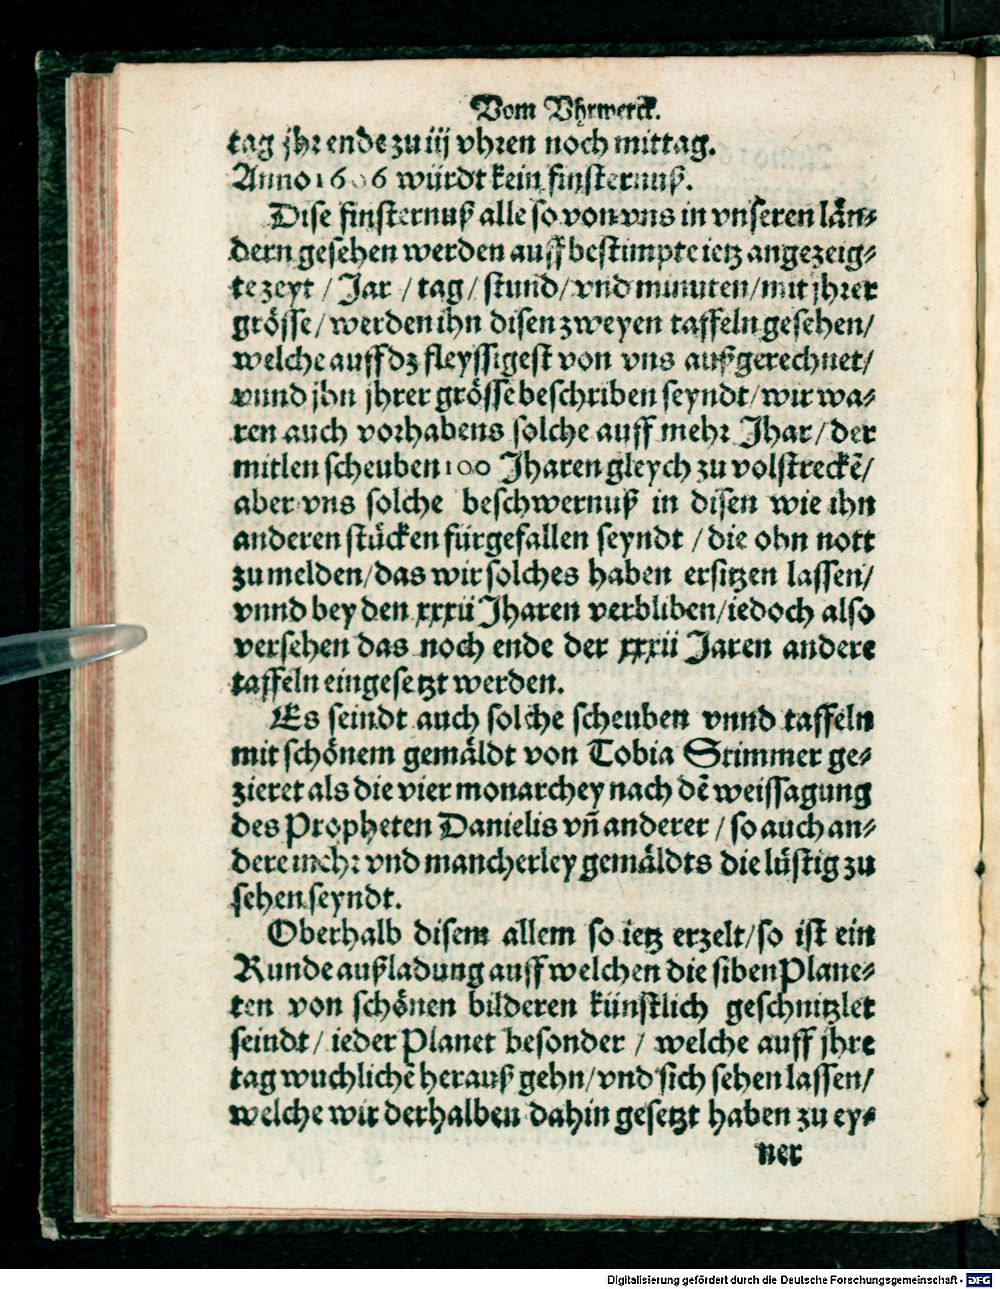 Vom Vhrwerck.
tag jhr ende zu iij vhren noch mittag.
Anno 1606 würdt kein finsternuß.
Dise finsternuß alle so von vns in vnseren län⸗
dern gesehen werden auff bestimpte ietz angezeig⸗
te zeyt / Jar / tag / stund / vnd minuten / mit jhrer
grösse / werden ihn disen zweyen taffeln gesehen /
welche auff dz fleyssigest von vns außgerechnet /
vnnd jhn jhrer grösse beschriben seyndt / wir wa⸗
ren auch vorhabens solche auff mehr Jhar / der
mitlen scheuben 100 Jharen gleych zu volstreckẽ /
aber vns solche beschwernuß in disen wie ihn
anderen stücken fürgefallen seyndt / die ohn nott
zu melden / das wir solches haben ersitzen lassen /
vnnd bey den xxxii Jharen verbliben / iedoch also
versehen das noch ende der xxxii Jaren andere
taffeln eingesetzt werden.
Es seindt auch solche scheuben vnnd taffeln
mit schönem gemäldt von Tobia Stimmer ge⸗
zieret als die vier monarchey nach dẽ weissagung
des Propheten Danielis vñ anderer / so auch an⸗
dere mehr vnd mancherley gemäldts die lüstig zu
sehen seyndt.
Oberhalb disem allem so ietz erzelt / so ist ein
Runde außladung auff welchen die siben Plane⸗
ten von schönen bilderen künstlich geschnitzlet
seindt / ieder Planet besonder / welche auff jhre
tag wuchlichẽ herauß gehn / vnd sich sehen lassen /
welche wir derhalben dahin gesetzt haben zu ey⸗
ner
Digitalisierung gefördert durch die Deutsche Forschungsgemeinschaft - DFG